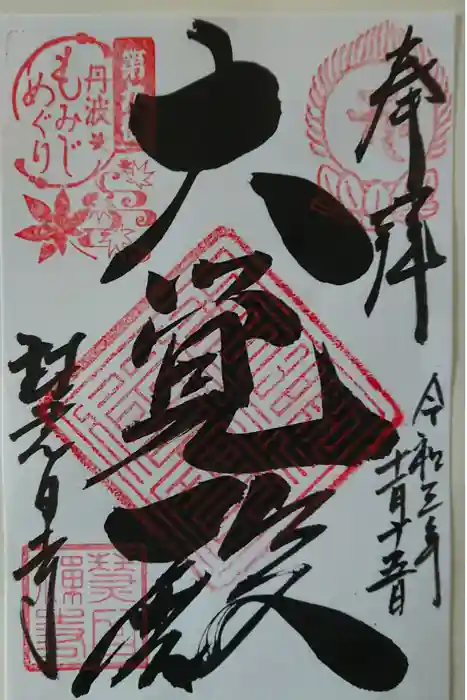 奉拝
令和三年
十一月十五日
大覚殿
丹波
もみじ
めぐり
日寺
慧日
禪寺